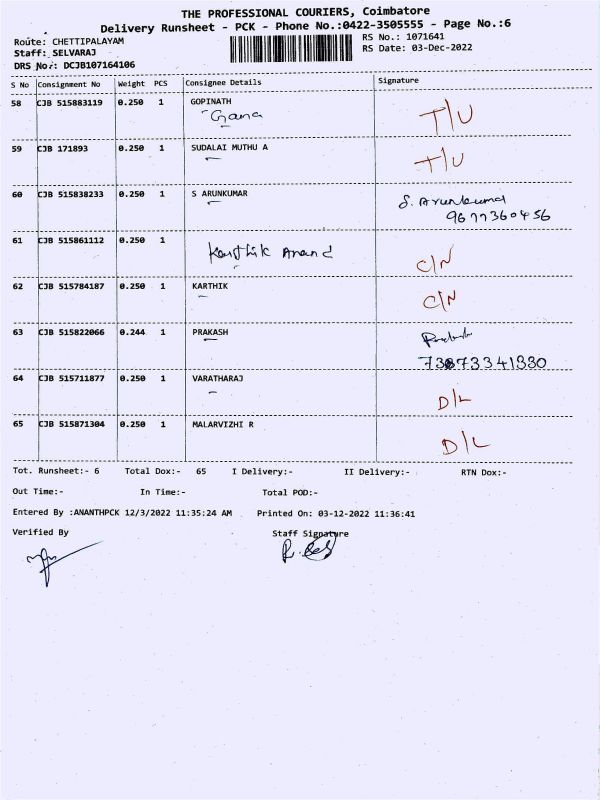 THE PROFESSIONAL COURIERS, Coimbatore
Delivery Runsheet - PCK - Phone No.:0422-3505555 - Page No.:6
Route: CHETTIPALAYAM RS No.: 1071641
Staff: SELVARAJ RS Date: 03-Dec-2022
DRS No.: DCJB107164106
S No Consignment No Weight PCS Consignee Details Signature
58 CJB 515883119 0.250 1 GOPINATH T/U
Gana
59 CJB 171893 0.250 1 SUDALAI MUTHU A T/U
60 CJB 515838233 0.250 1 S ARUNKUMAR S. Arunkumar
9677360456
61 CJB 515861112 0.250 1 Karthik Anand C/N
62 CJB 515784187 0.250 1 KARTHIK C/N
63 CJB 515822066 0.244 1 PRAKASH
64 CJB 515711877 0.250 1 VARATHARAJ D/L
65 CJB 515871304 0.250 1 MALARVIZHI R D/L
Tot. Runsheet:- 6 Total Dox:- 65 I Delivery:- II Delivery:- RTN Dox:-
Out Time:- In Time:- Total POD:-
Entered By :ANANTHPCK 12/3/2022 11:35:24 AM Printed On: 03-12-2022 11:36:41
Verified By Staff Signature